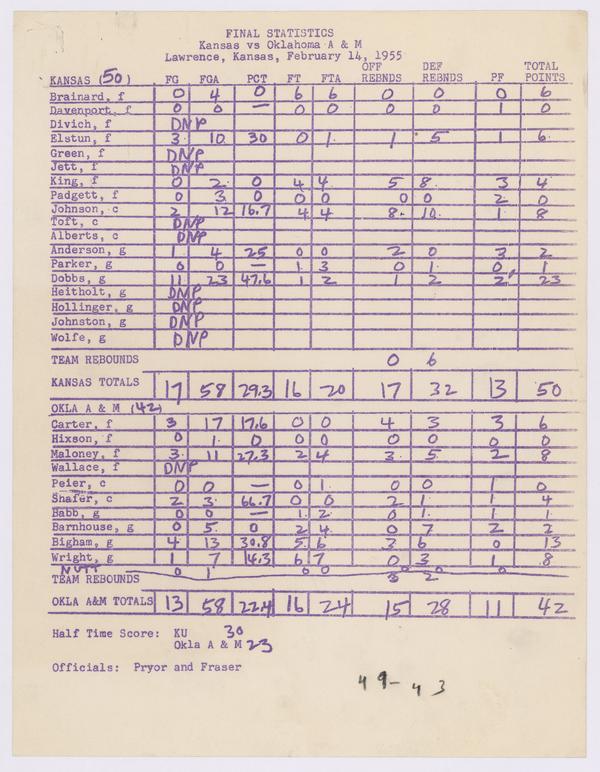 FINAL STATISTICS
Kansas vs Oklahoma A & M
Lawrence, Kansas, February 14, 1955
OFF DEF TOTAL
KANSAS (50) FG FGA PCT FT FTA REBNDS REBNDS PF POINTS
Brainard, f 0 4 0 6 6 0 0 0 6
Davenport, f 0 0 — 0 0 0 0 1 0
Divich, f DNP
Elstun, f 3 10 30 0 1 1 5 1 6
Green, f DNP
Jett, f DNP
King, f 0 2 0 4 4 5 8 3 4
Padgett, f 0 3 0 0 0 0 0 2 0
Johnson, c 2 12 16.7 4 4 8 10 1 8
Toft, c DNP
Alberts, c DNP
Anderson, g 1 4 25 0 0 2 0 3 2
Parker, g 0 0 — 1 3 0 1 0 1
Dobbs, g 11 23 47.6 1 2 1 2 2 23
Heitholt, g DNP
Hollinger, g DNP
Johnston, g DNP
Wolfe, g DNP
TEAM REBOUNDS 0 6
KANSAS TOTALS 17 58 29.3 16 20 17 32 13 50
OKLA A & M (42)
Carter, f 3 17 17.6 0 0 4 3 3 6
Hixson, f 0 1 0 0 0 0 0 0 0
Maloney, f 3 11 27.3 2 4 3 5 2 8
Wallace, f DNP
Peier, c 0 0 — 0 1 0 0 1 0
Shafer, c 2 3 66.7 0 0 2 1 1 4
Babb, g 0 0 — 1 2 0 1 1 1
Barnhouse, g 0 5 0 2 4 0 7 2 2
Bigham, g 4 13 30.8 5 6 3 6 0 13
Wright, g 1 7 14.3 6 7 0 3 1 8
NUTT 0 1 0 0 0 0 0
TEAM REBOUNDS 3 2
OKLA A&M TOTALS 13 58 22.4 16 24 15 28 11 42
Half Time Score: KU 30
Okla A & M 23
Officials: Pryor and Fraser
49-43